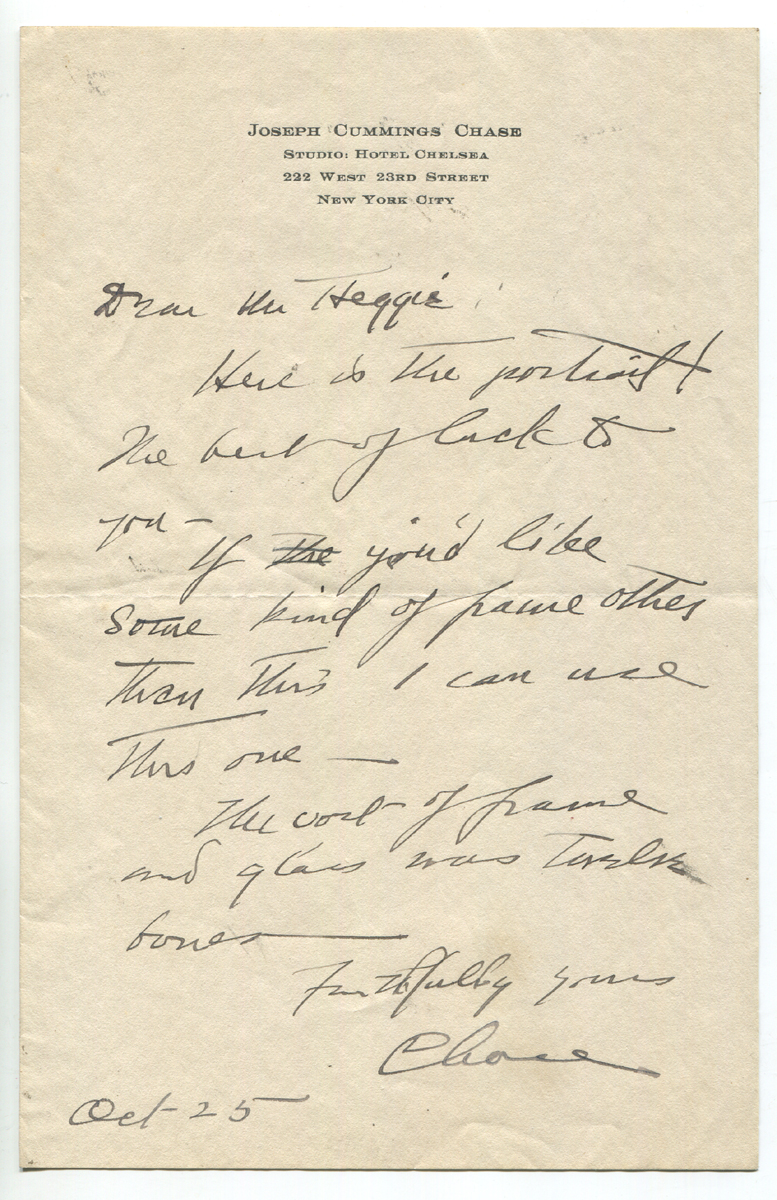 JOSEPH CUMMINGS CHASE
STUDIO: HOTEL CHELSEA
222 WEST 23RD STREET
NEW YORK CITY
Dear Mr Heggie
Here is the portrait!
The best of luck to
you—
If the you'd like
some kind of frame other
than this I can use
this one —
The cost of frame
and glass was twelve
bones —
Faithfully yours
Chase
Oct 25